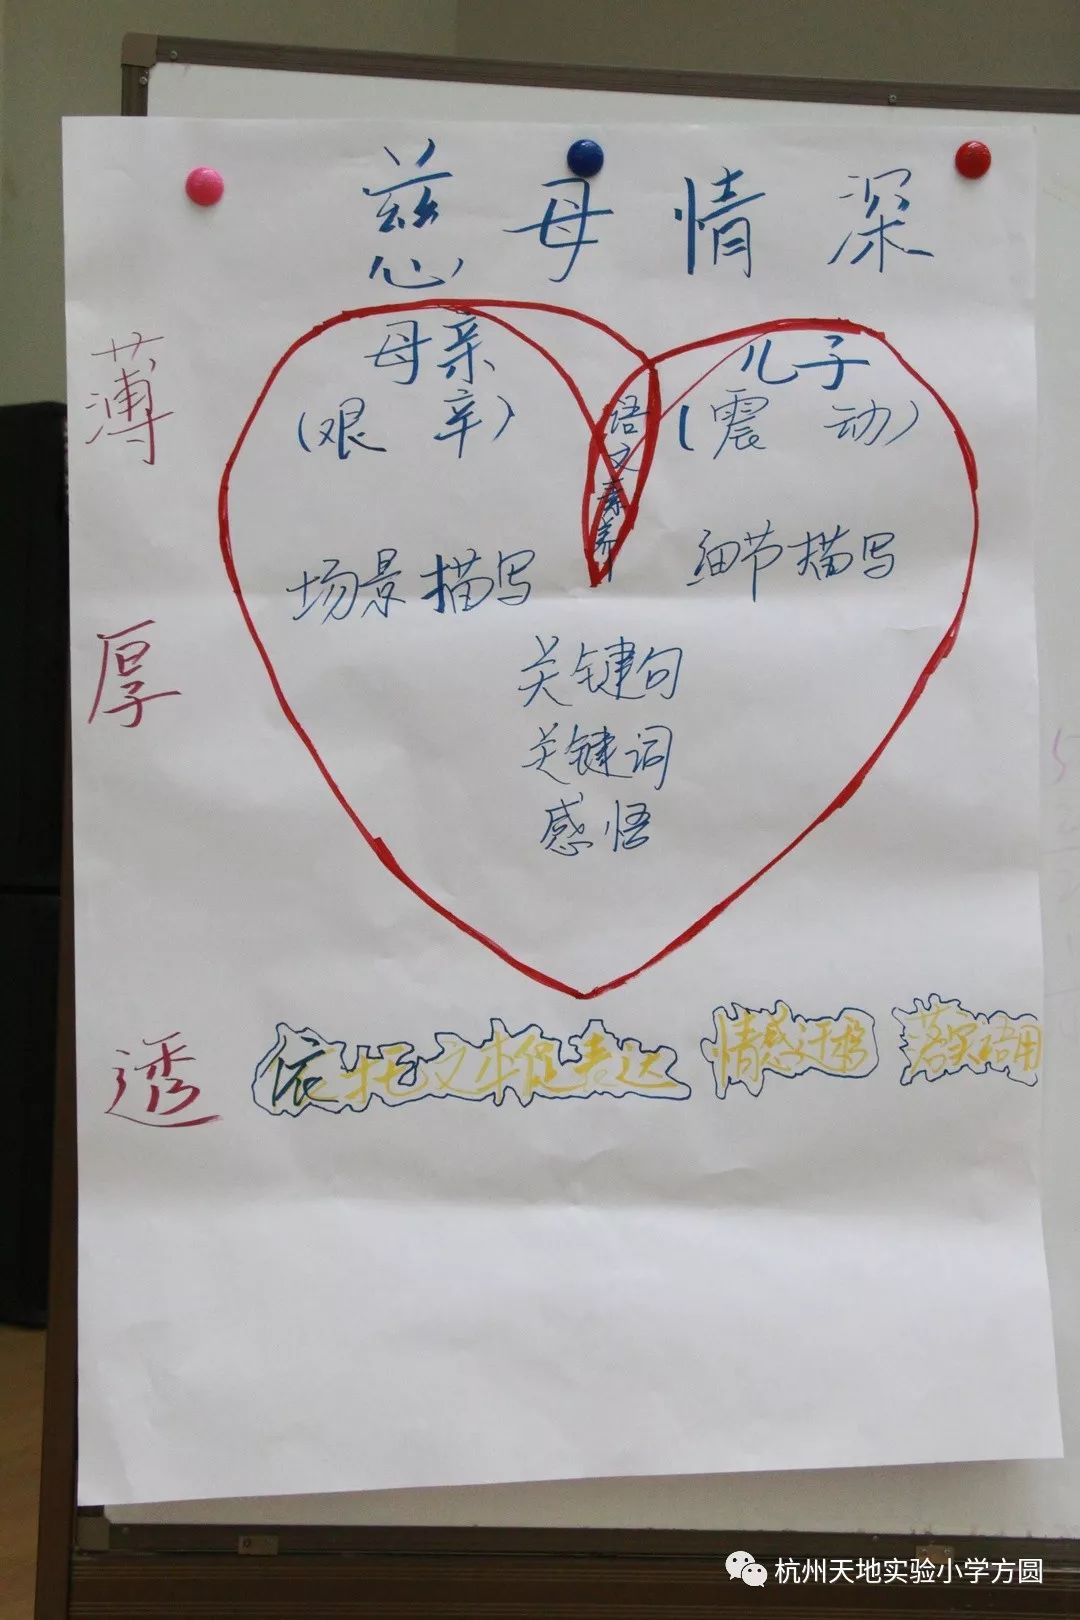 慈母情深
薄
母亲
(艰 辛)
儿子
(震 动)
语文素养
场景描写
细节描写
厚
关键句
关键词
感悟
透
依托文本促表达
情感迁移
落实语用
杭州天地实验小学方圆